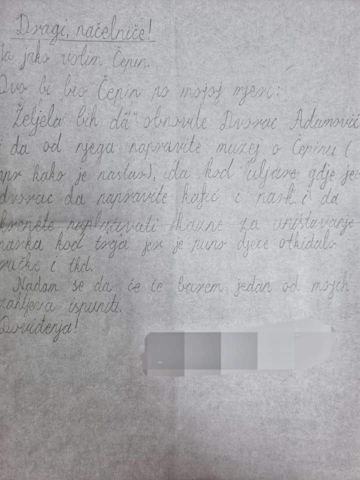 Dragi, načelniče!
Ja jako volim Čepin.
Ovo bi bio Čepin po mojoj mjeri:
Željela bih da obnovite Dvorac Adamović
i da od njega napravite muzej o Čepinu (
npr kako je nastao), da kod uljare gdje je
dvorac da napravite kafić i park i da
krenete naplaćivati kazne za uništavanje
parka kod toga jer je puno djece otkidalo
i thd.
Nadam se da će te barem jedan od mojih
zahtjeva ispuniti.
Doviđenja!